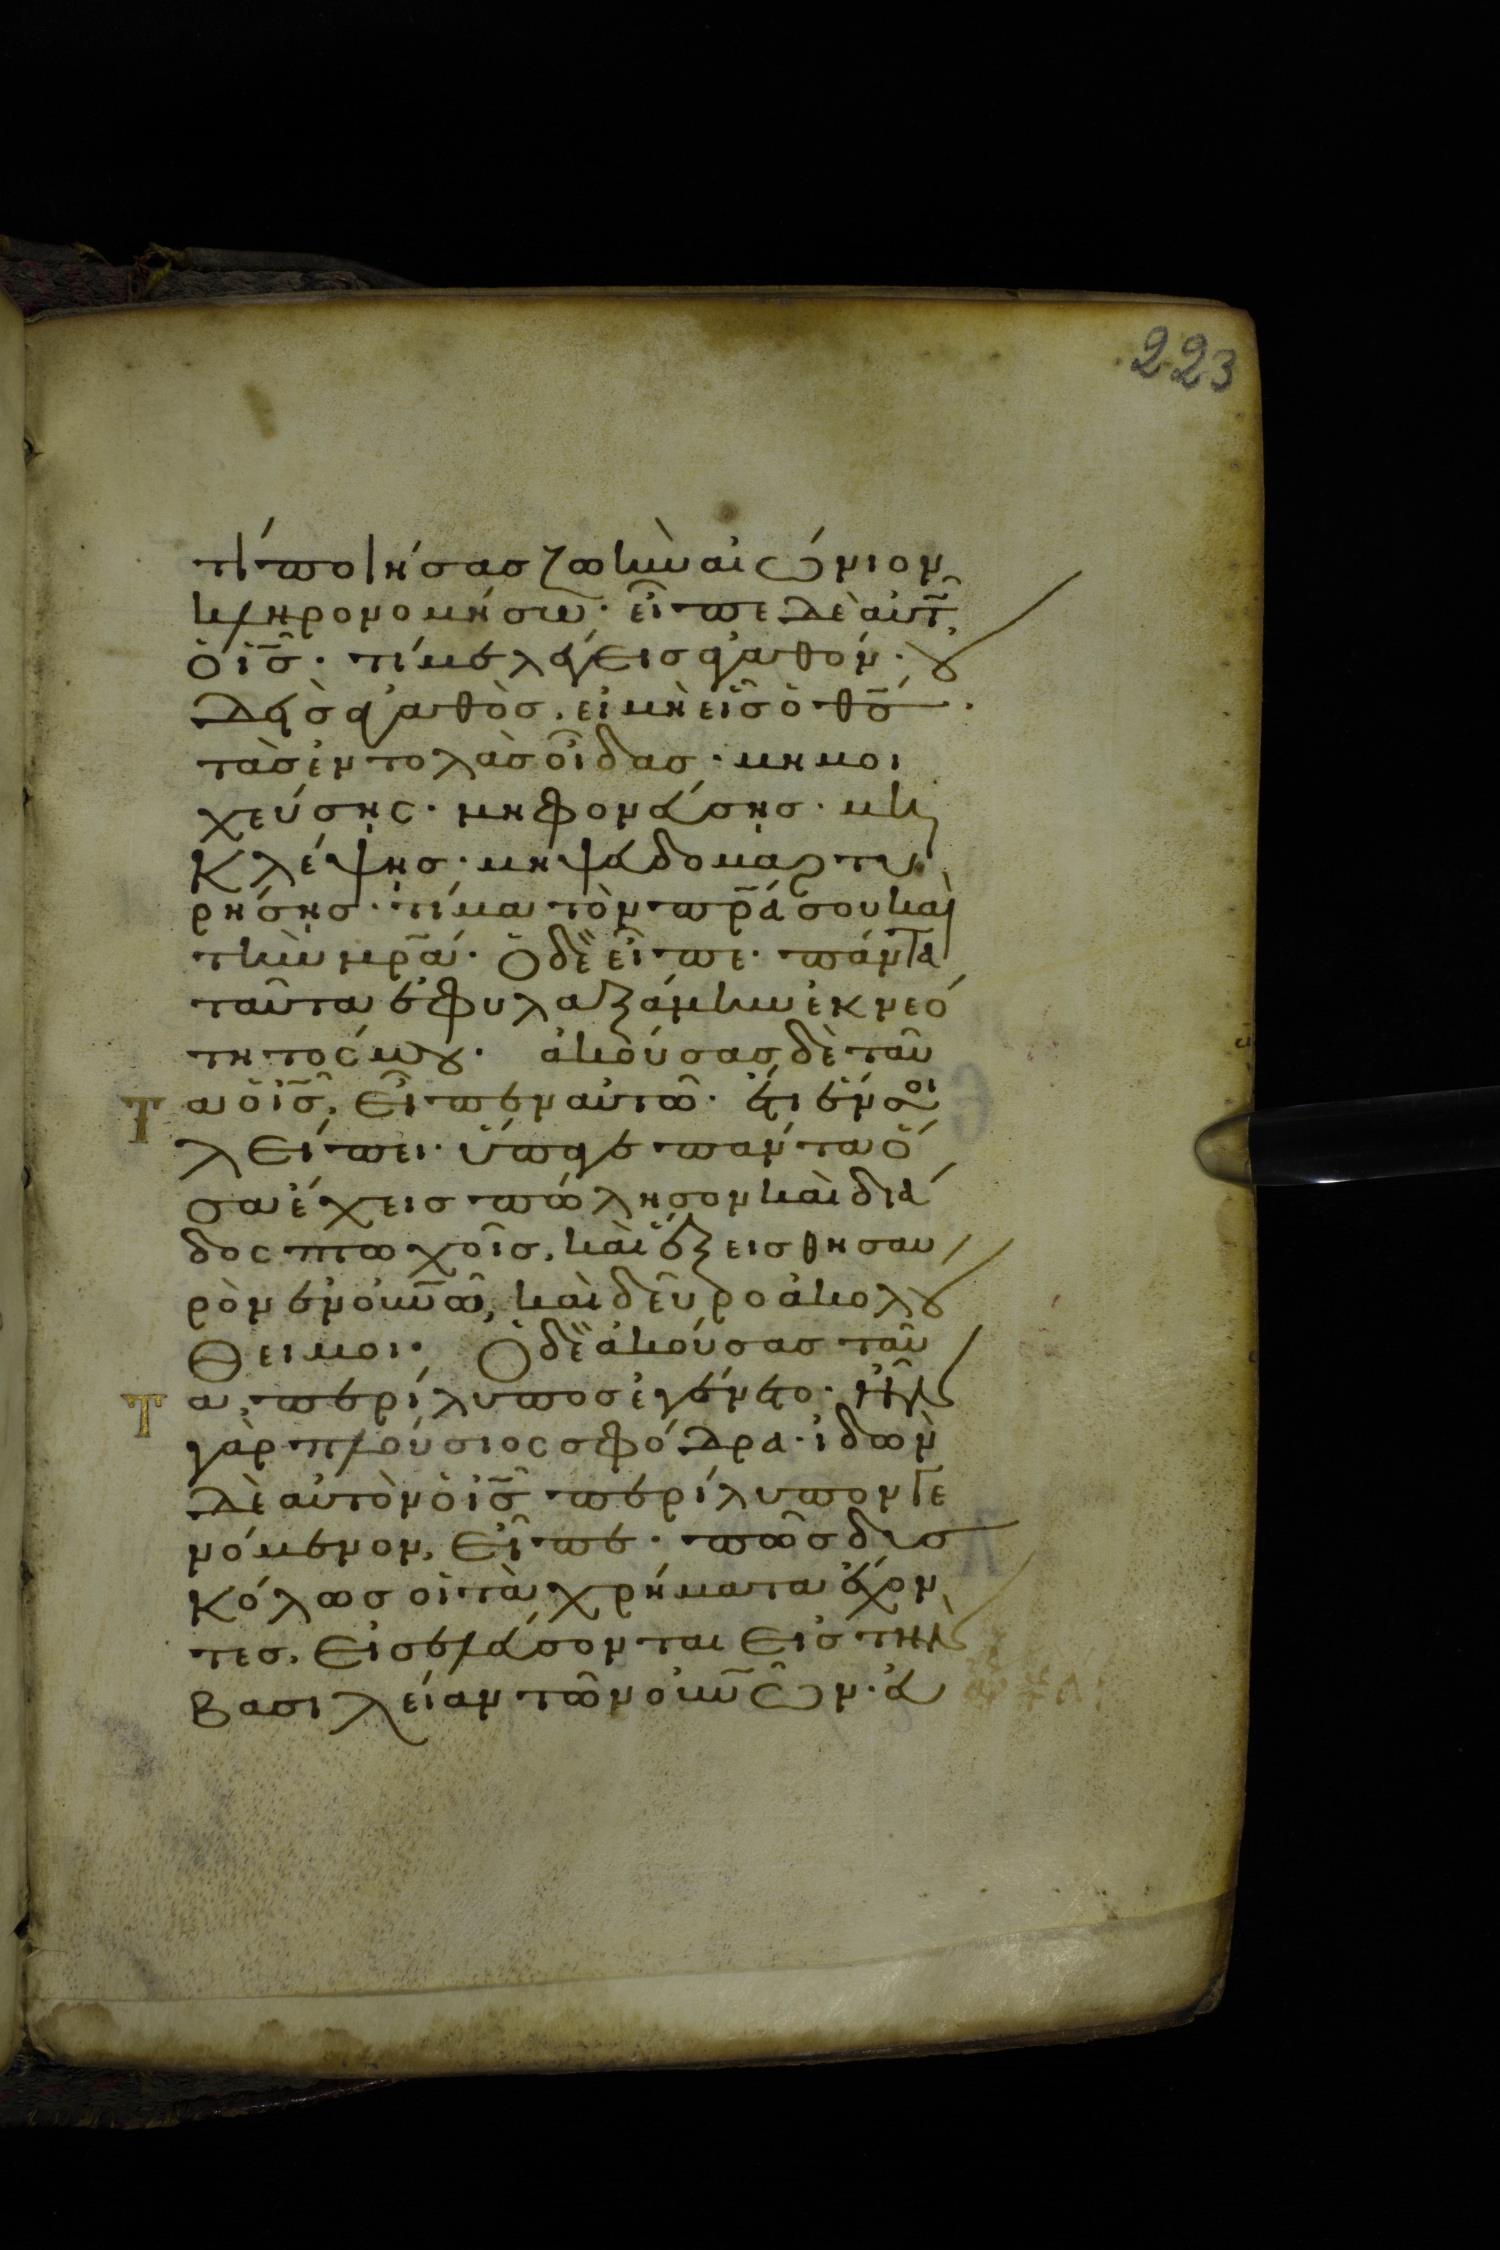 223
τί ποιήσας ζωὴν αἰώνιον
κληρονομήσω· εἶπε δὲ αὐτῶ
ὁ ἰς̅· τί με λέγεις ἀγαθόν· οὐ
δεὶς ἀγαθὸς, εἰ μὴ εἷς ὁ θς̅.
τὰς ἐντολὰς οἶδας· μη μοι
χεύσης· μη φονεύσης· μη
κλέψης· μη ψευδομαρτυ
ρήσης· τίμα τὸν πρ̅α σου καὶ
τὴν μρ̅α· Ὁ δὲ εἶπε· πάντα
ταῦτα ἐφυλαξάμην ἐκ νεό
τητός μου· ἀκούσας δὲ ταῦ
Τ τα ὁ ἰς̅, εἶπεν αὐτῶ· ἔτι ἕν σοι
λείπει· ὕπαγε πάντα ὅ
σα ἔχεις πώλησον καὶ διά
δος πτωχοῖς, καὶ ἕξεις θησαυ
ρὸν ἐν οὐνῶ, καὶ δεῦρο ἀκολού
θει μοι· Ὁ δὲ ἀκούσας ταῦ
Τ τα, περίλυπος ἐγένετο· ἦν
γὰρ πλούσιος σφόδρα· ἰδὼν
δὲ αὐτὸν ὁ ἰς̅ περίλυπον γε
νόμενον, εἶπε· πῶς δυσ
κόλως οἱ τὰ χρήματα ἔχον
τες, εἰσελεύσονται εἰς τὴν
βασιλείαν τῶν οὐνῶν· εὐ